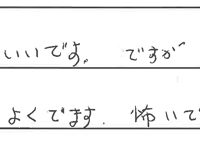 いいです。 ですが
よくでます. 怖いで